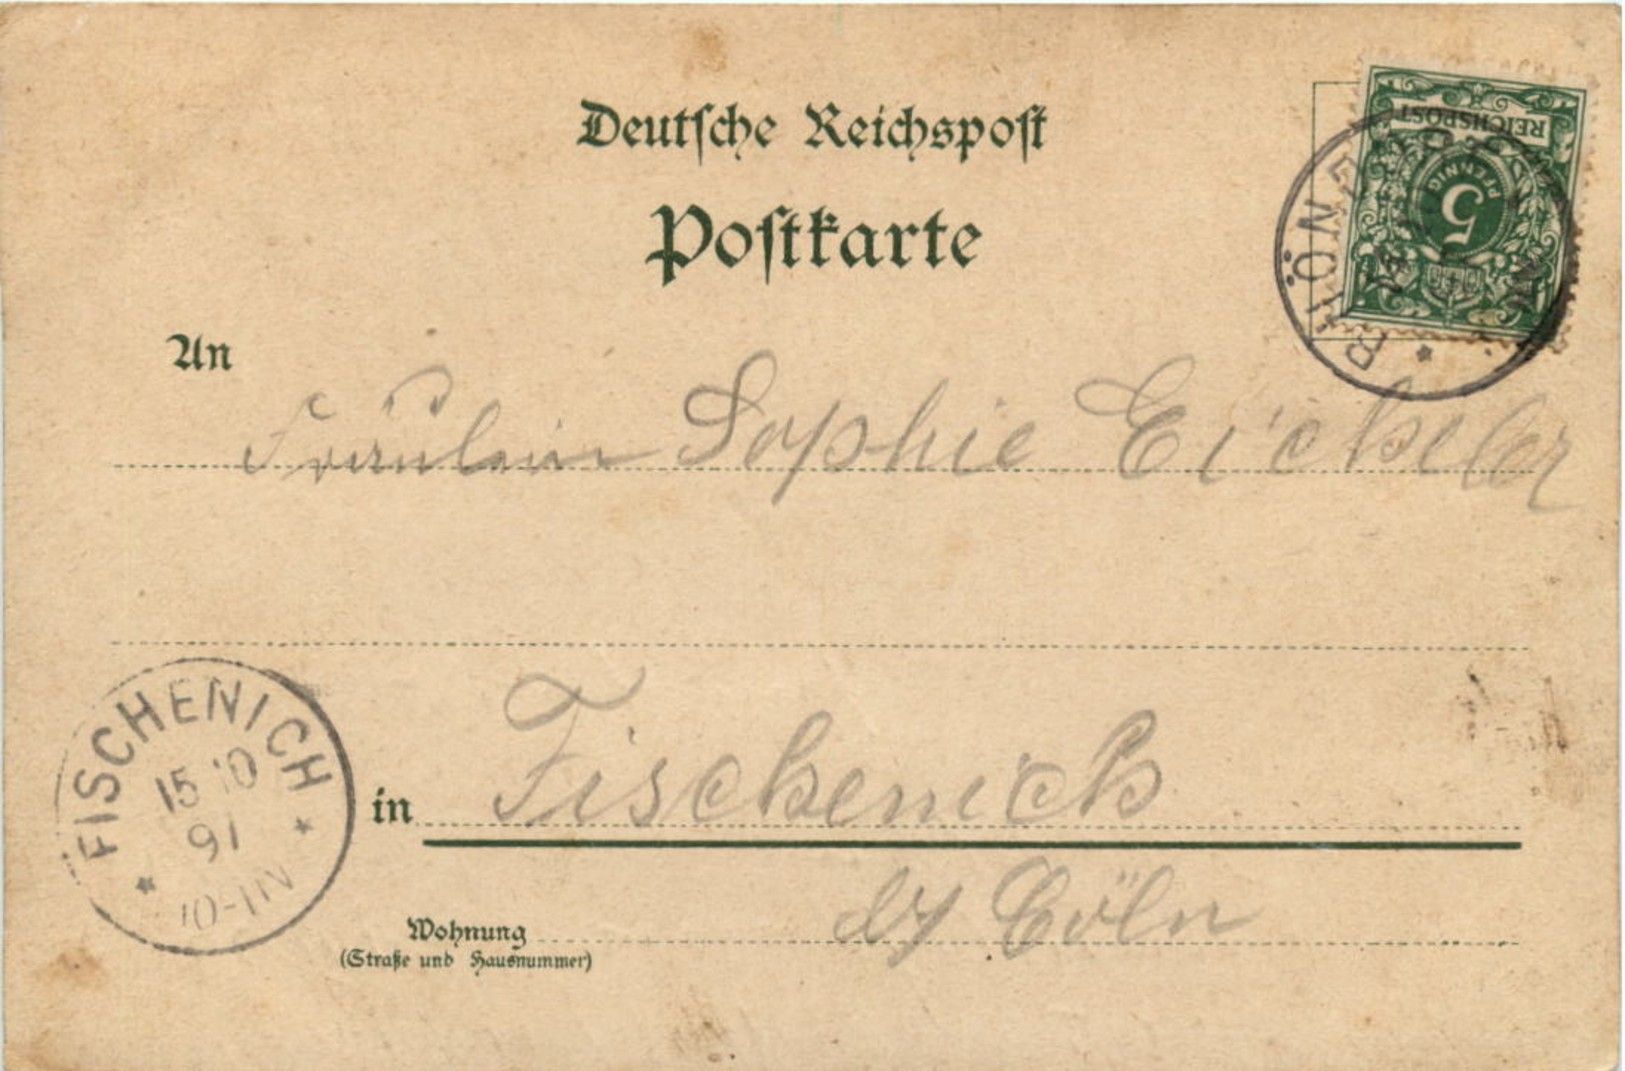 Deutsche Reichspost
Postkarte
REICHSPOST
PFENNIG
5
RHÖND
An
Fräulein Sophie Eickeler
FISCHENICH
15 10
91
10-11N
in Fischenich
Cöln
Wohnung
(Straße und Hausnummer)